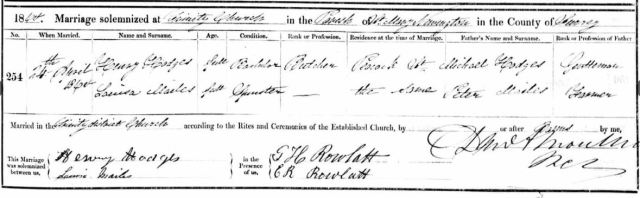 1864. Marriage solemnized at Trinity Church in the Parish of St. Mary Newington in the County of Surrey
No. When Married. Name and Surname. Age. Condition. Rank or Profession. Residence at the time of Marriage. Father's Name and Surname. Rank or Profession of Father
254 24th April 1864 Henry Hodges full Bachelor Butcher Peacock St. Michael Hodges Gentleman
Louisa Mailes full Spinster — the same Peter Mailes Farmer
Married in the Trinity District Church according to the Rites and Ceremonies of the Established Church, by or after Banns by me,
This Marriage was solemnized between us, Henry Hodges in the Presence of us, T H Rowlatt David A
Mailes E R Rowlatt